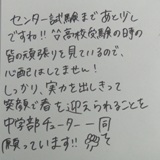 センター試験まであと少し
ですね!! 笞高校受験の時の
皆の頑張りを見ているので、
心配はしてません!
しっかり、実力を出しきって
笑顔で春を迎えられることを
中学部チューター一同
願っています!!